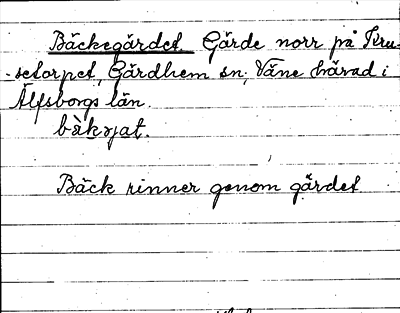 Bäckegärdet Gärde norr på Kru-
-setorpet, Gärdhem sn, Väne härad i
Älfsborgs län.
bäkɟat.
Bäck rinner genom gärdet